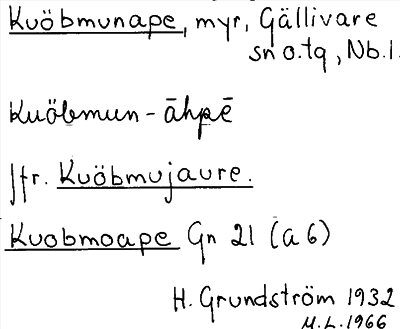 Kuöbmunape, myr, Gällivare
sn o. tg, Nb. l.
Kuöbmun-āhpē
Jfr. Kuöbmujaure.
Kuobmoape Gn 21 (a 6)
H. Grundström 1932
M.L. 1966